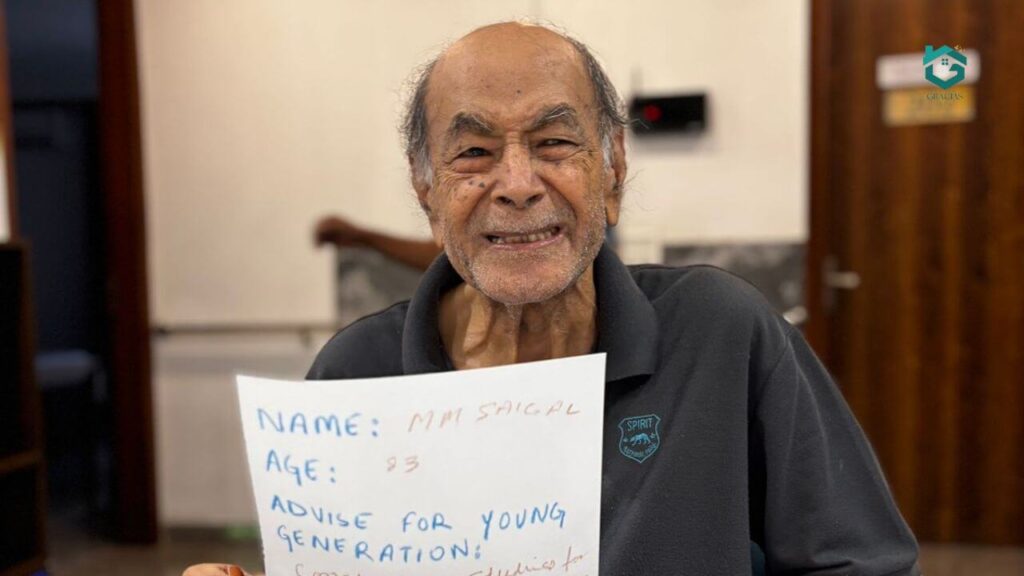 GRACIAS
NAME: MM SAIGAL
AGE: 83
ADVISE FOR YOUNG
GENERATION:
studies for
SPIRIT